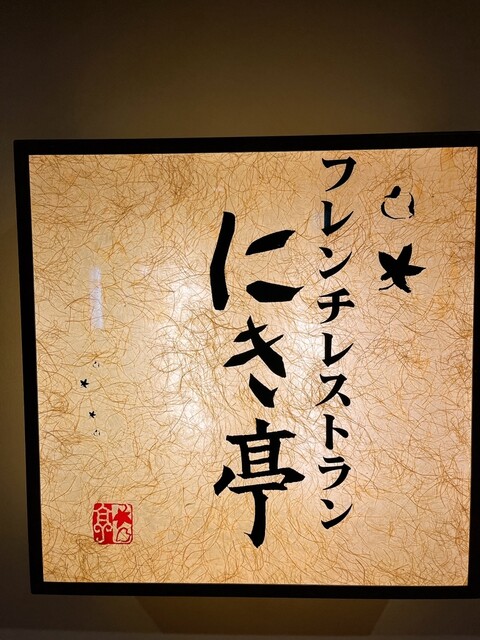 フレンチレストラン
にき亭
亭